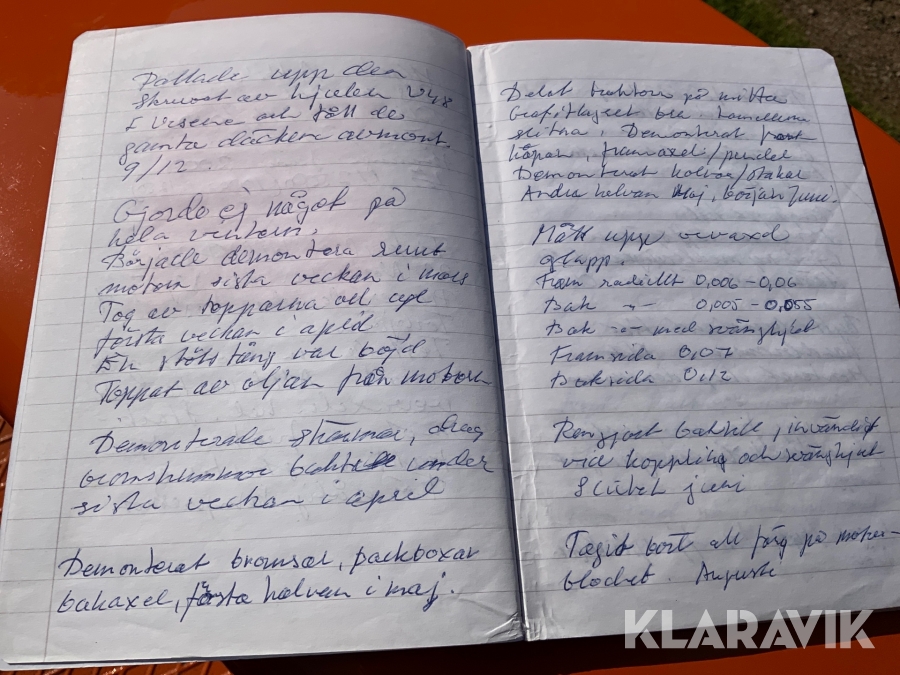 Pallade upp den
skruvat av hjulen V48
och fått de
gamla däcken avmont.
9/12.
Gjorde ej något på
hela vintern.
Började demontera runt
motorn sista veckan i mars
Tog av topparna och
första veckan i april
En stötstång var böjd
Tappat av oljan från motorn
Demonterade skärmar, drag
bromstrummor baktill under
sista veckan i april
Demonterat bromsar, packboxar
bakaxel, första halvan i maj.
Delat traktorn på mitten
slitna, Demonterat
kåpan, framaxel/pendel
Demonterat kolvar/stakar
Andra halvan Maj, början Juni.
Mätt upp vevaxel
glapp.
Fram radiellt 0,006 - 0,06
Bak -"- 0,005 - 0,055
Bak -"- med svänghjul
Framsida 0,07
Baksida 0,12
Rengjort baktill, invändigt
vid koppling och svänghjul
Slutet juni
Tagit bort all färg på motor-
blocket. Augusti
KLARAVIK